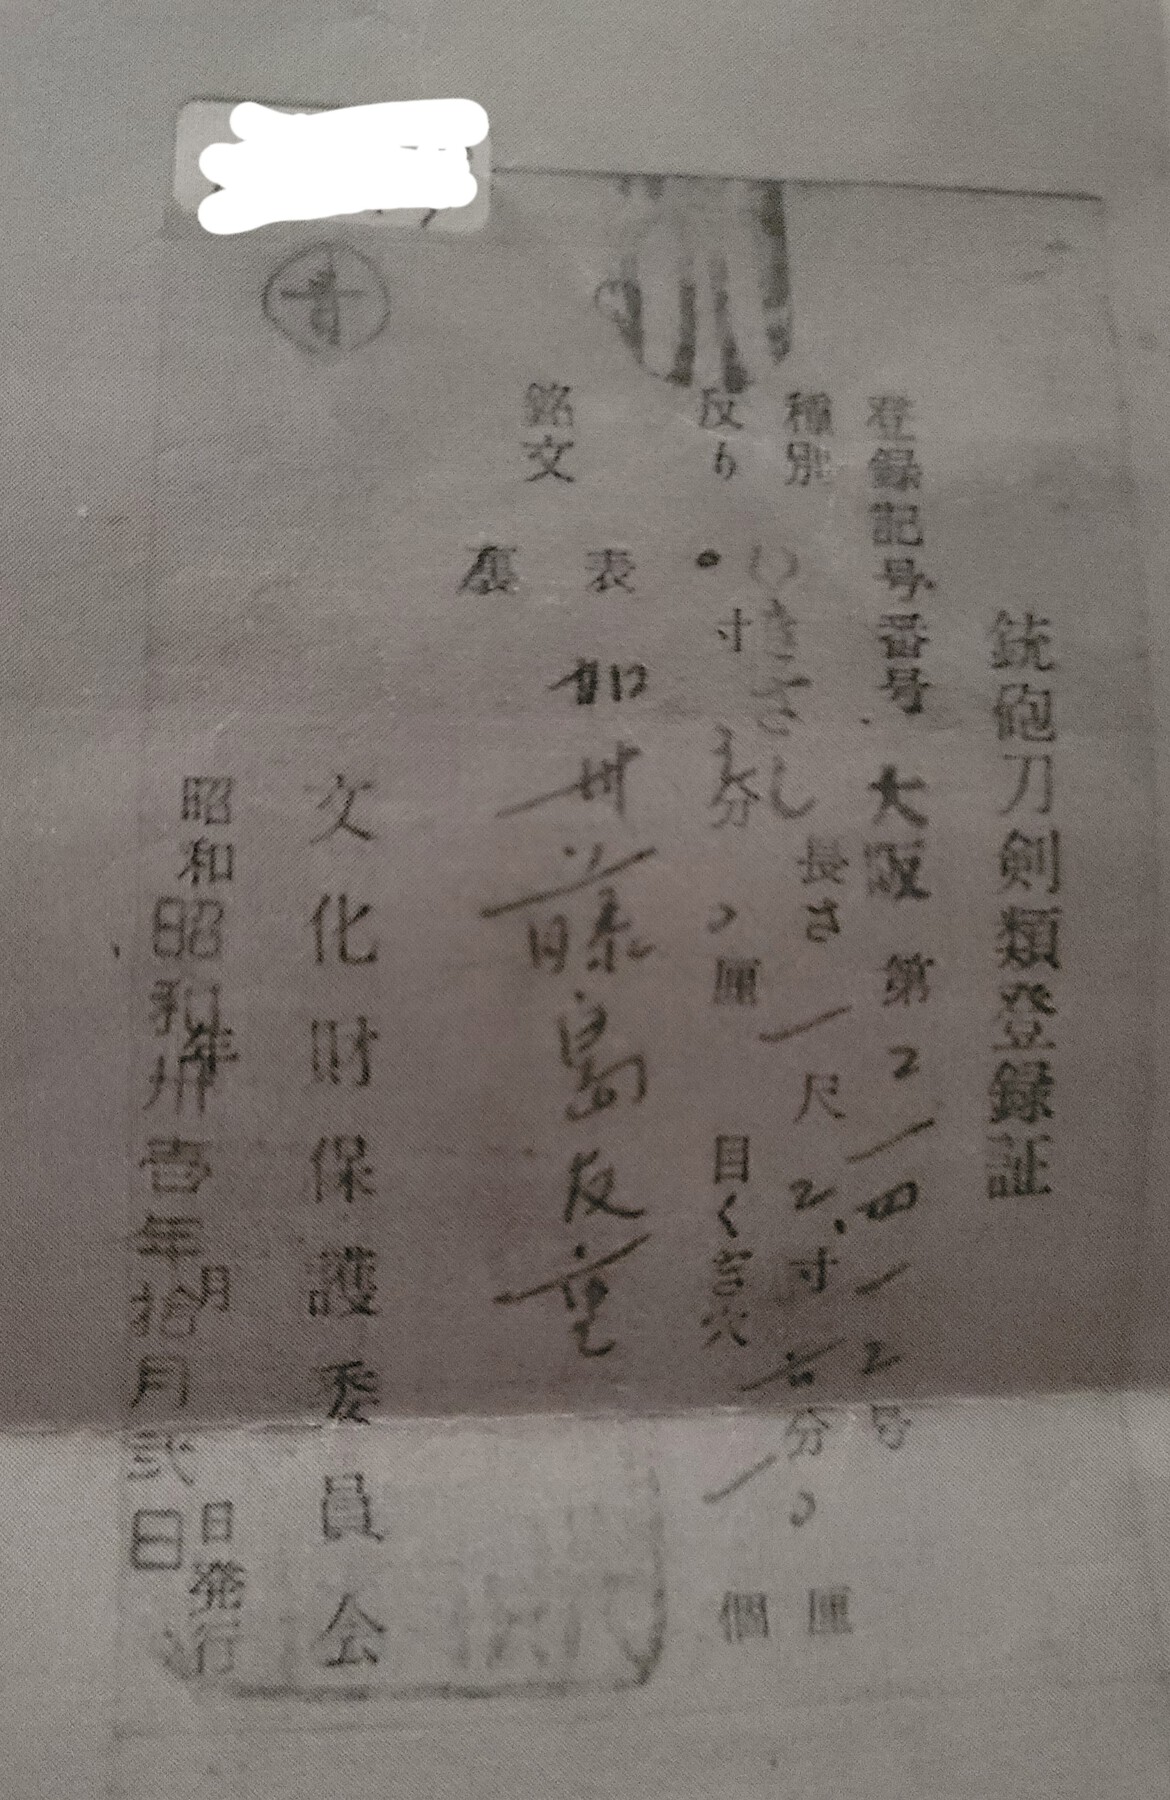 銃砲刀剣類登録証
登録記号番号 大阪 第2一四一2号
種別 わきざし 長さ 一尺2寸 分0厘
反り 寸 分0厘 目くぎ穴 一個
銘文 表 加州藤島友重
裏
文化財保護委員会
昭和 年 月 日発行
昭和卅壱年拾月弐日